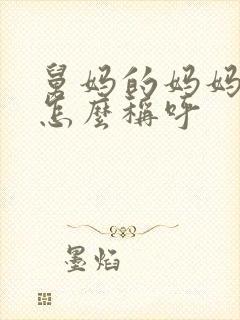 舅妈的妈妈
怎麽稱呼
墨焰